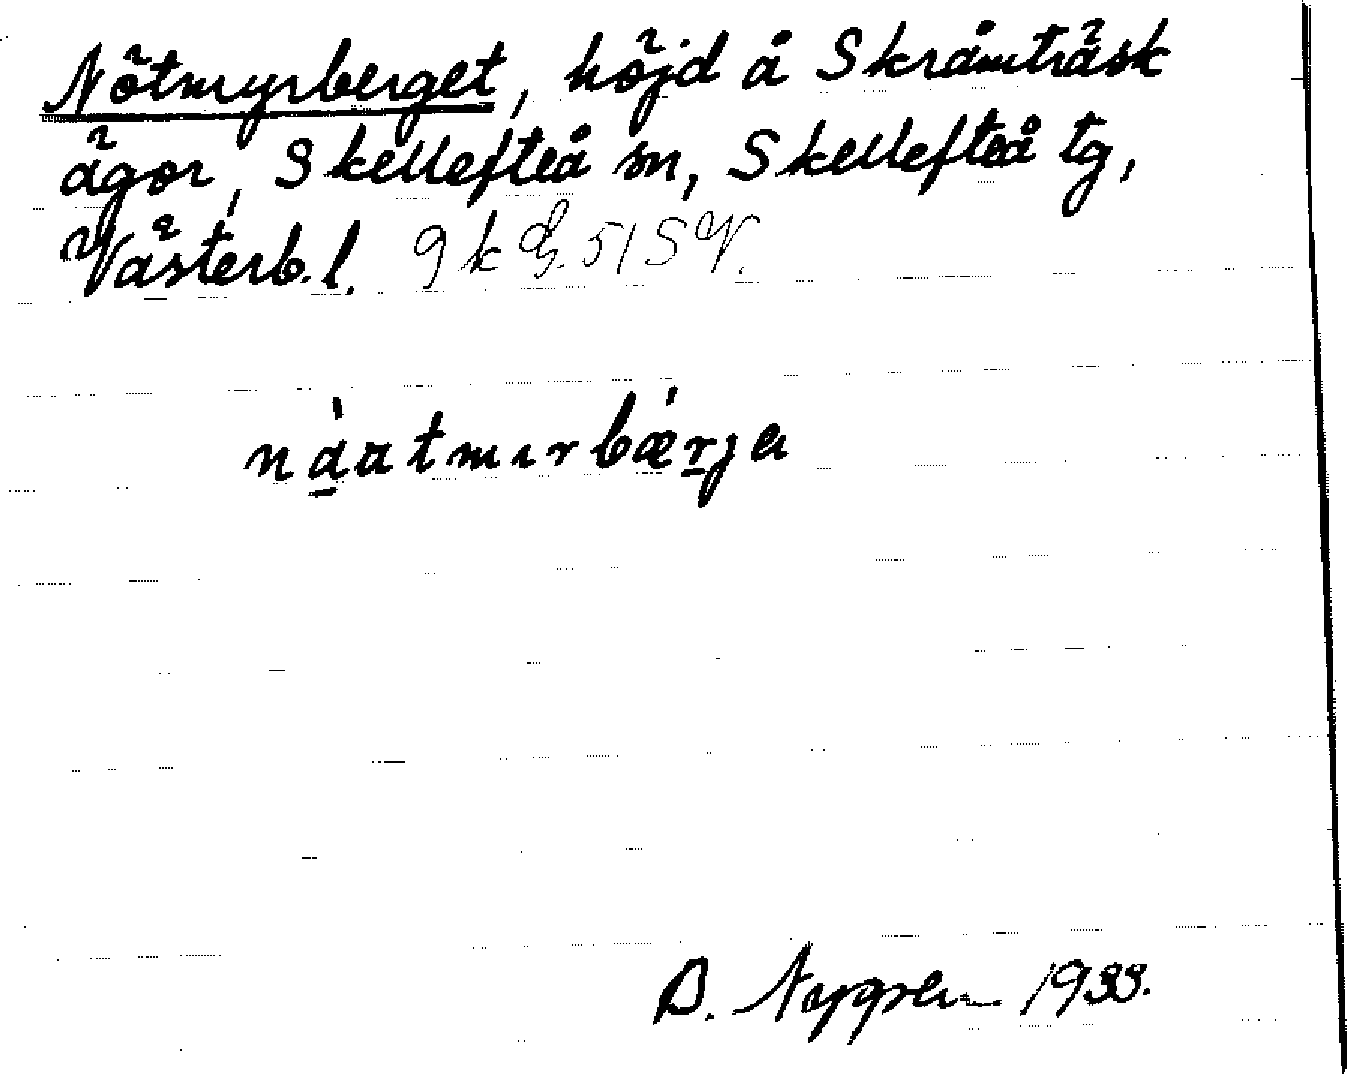 Nötmyrberget, höjd å Skråmträsk
ägor, Skellefteå sn, Skellefteå tg,
Västerb. l. gk 51 SV.
näatmırbærja
D. Nygren 1933.